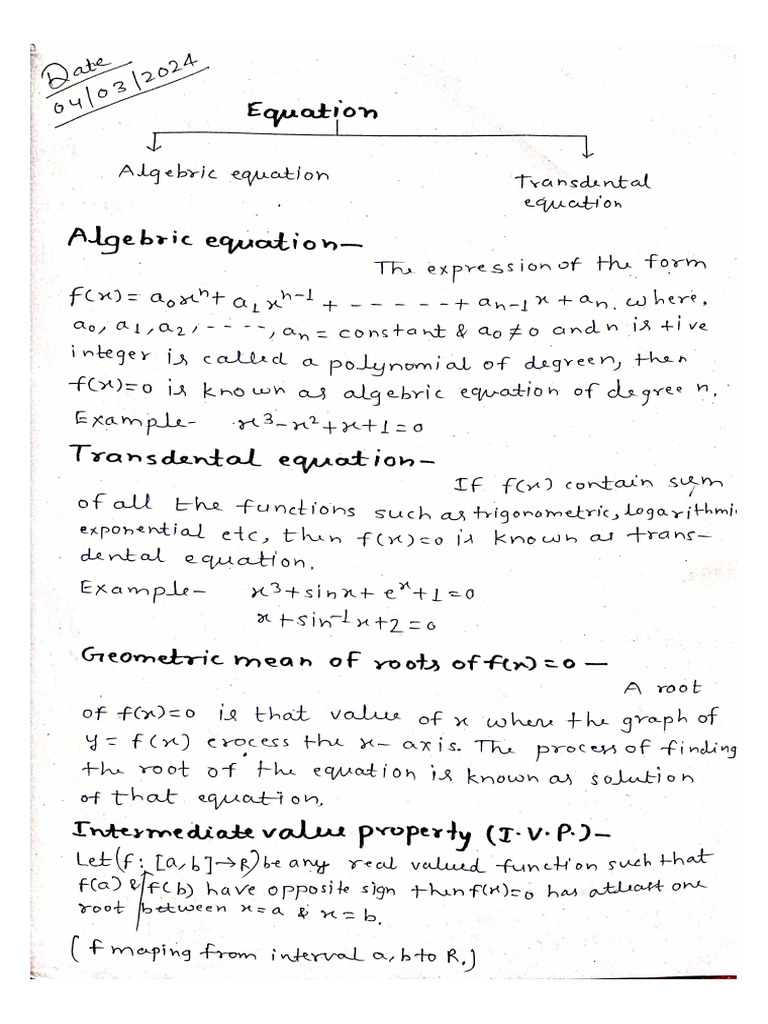 Date
04/03/2024
Equation
Algebric equation
Transdental
equation
Algebric equation—
The expression of the form
f(x) = a₀xⁿ + a₁xⁿ⁻¹ + - - - - - + aₙ₋₁x + aₙ. where,
a₀, a₁, a₂, - - - -, aₙ = constant & a₀ ≠ 0 and n is +ive
integer is called a polynomial of degree n, then
f(x)=0 is known as algebric equation of degree n.
Example- x³-x²+x+1=0
Transdental equation—
If f(x) contain sum
of all the functions such as trigonometric, logarithmic
exponential etc, then f(x)=0 is known as trans-
dental equation.
Example- x³+sinx+eˣ+1=0
x+sin⁻¹x+2=0
Geometric mean of roots of f(x)=0 —
A root
of f(x)=0 is that value of x where the graph of
y = f(x) crocess the x-axis. The process of finding
the root of the equation is known as solution
of that equation.
Intermediate value property (I.V.P.)—
Let (f: [a,b]→R) be any real valued function such that
f(a) & f(b) have opposite sign then f(x)=0 has atleast one
root between x=a & x=b.
(f maping from interval a,b to R.)